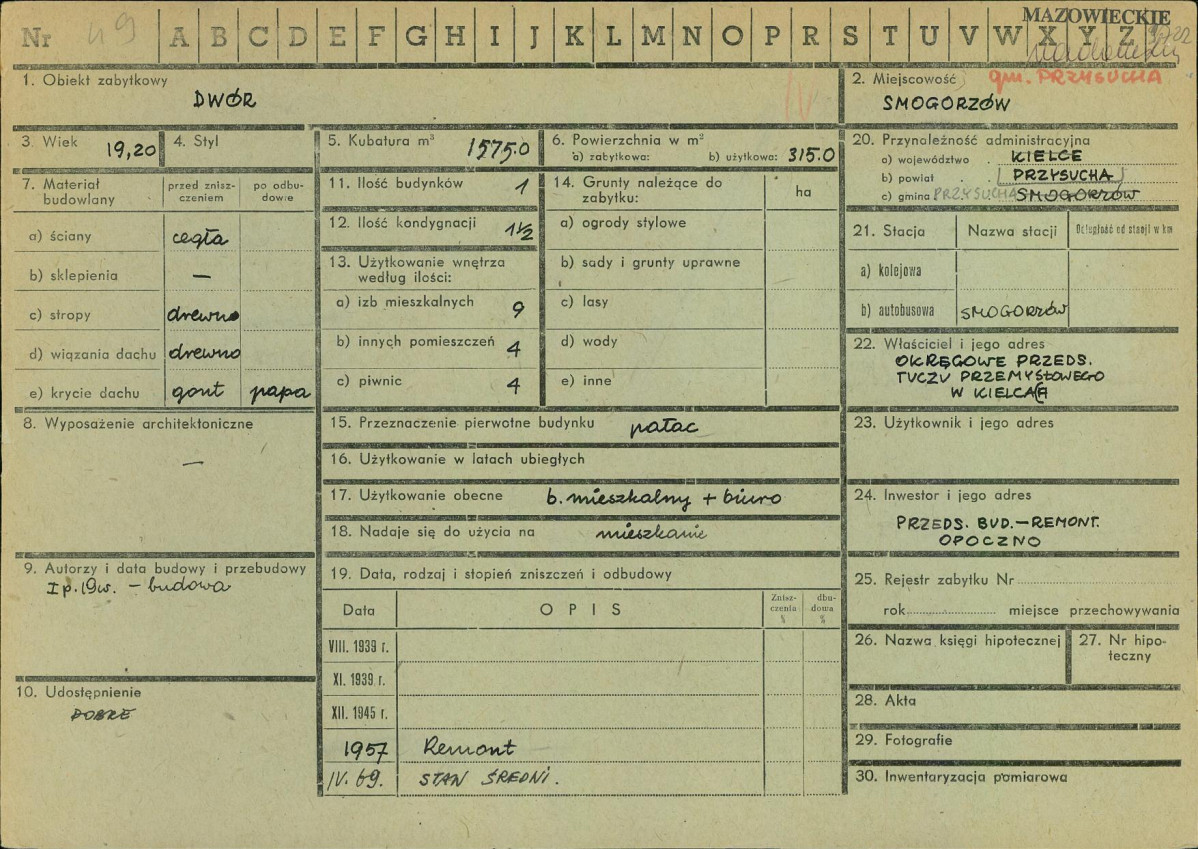 Nr 49 A B C D E F G H I J K L M N O P R S T U V W X Y Z
MAZOWIECKIE
1. Obiekt zabytkowy
DWÓR
2. Miejscowość gm. PRZYSUCHA
SMOGORZÓW
3. Wiek 19,20
4. Styl
5. Kubatura m³ 1575.0
6. Powierzchnia w m²
a) zabytkowa: b) użytkowa: 315.0
7. Materiał budowlany
przed znisz-
czeniem
po odbu-
dowie
a) ściany cegła
b) sklepienia —
c) stropy drewno
d) wiązania dachu drewno
e) krycie dachu gont papa
8. Wyposażenie architektoniczne
—
9. Autorzy i data budowy i przebudowy
I p. 19w. – budowa
10. Udostępnienie
DOBRE
11. Ilość budynków 1
12. Ilość kondygnacji 1½
13. Użytkowanie wnętrza
według ilości:
a) izb mieszkalnych 9
b) innych pomieszczeń 4
c) piwnic 4
14. Grunty należące do
zabytku:
ha
a) ogrody stylowe
b) sady i grunty uprawne
c) lasy
d) wody
e) inne
15. Przeznaczenie pierwotne budynku pałac
16. Użytkowanie w latach ubiegłych
17. Użytkowanie obecne b. mieszkalny + biuro
18. Nadaje się do użycia na mieszkanie
19. Data, rodzaj i stopień zniszczeń i odbudowy
Data
OPIS
Znisz-
czenia
%
dbu-
dowa
%
VIII. 1939 r.
XI. 1939 r.
XII. 1945 r.
1957 Remont
IV. 69. STAN ŚREDNI.
20. Przynależność administracyjna
a) województwo KIELCE
b) powiat PRZYSUCHA
c) gmina PRZYSUCHA SMOGORZÓW
21. Stacja
Nazwa stacji
Odległość od stacji w km
a) kolejowa
b) autobusowa SMOGORZÓW
22. Właściciel i jego adres
OKRĘGOWE PRZEDS.
TUCZU PRZEMYSŁOWEGO
W KIELCACH
23. Użytkownik i jego adres
24. Inwestor i jego adres
PRZEDS. BUD.–REMONT.
OPOCZNO
25. Rejestr zabytku Nr
rok miejsce przechowywania
26. Nazwa księgi hipotecznej
27. Nr hipo-
teczny
28. Akta
29. Fotografie
30. Inwentaryzacja pomiarowa